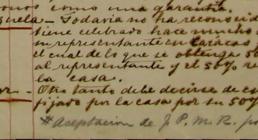 como una garantía.
Todavía no ha reconocid
tiene celebrado hace mucho
un representante en Caracas
el cual de lo que se obtenga
al representante y el 50%
la casa.
Otro tanto debe decirse de
fijado por la casa por su 50%
* Aceptacion de J. P. M. R.